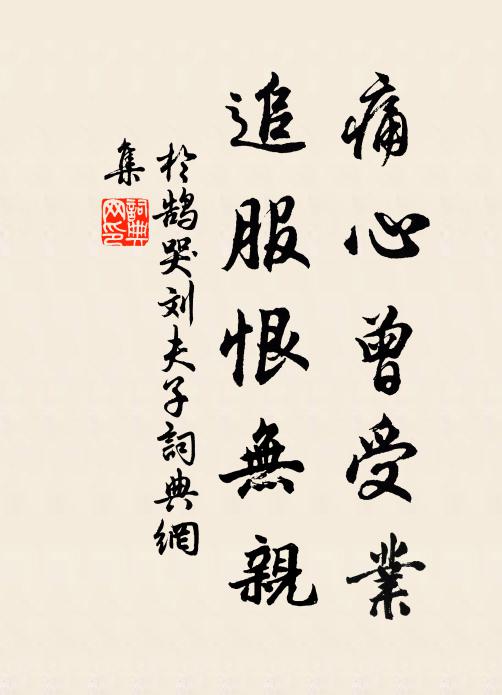 痛心曾受業
追服恨無親
於鹄哭刘夫子詞典網
集
詞典
网印